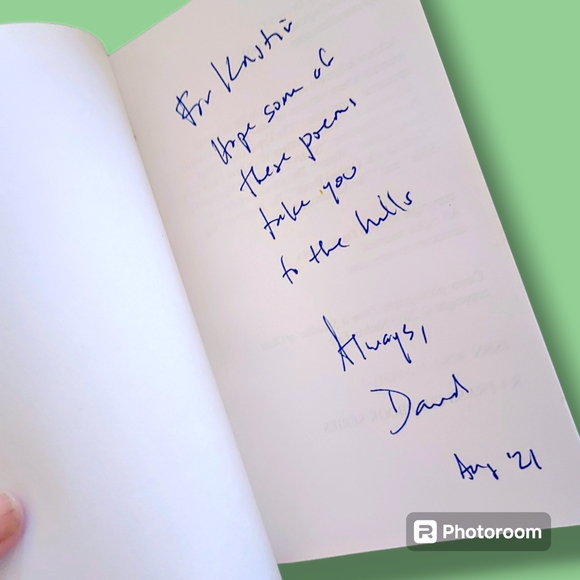 For Kristin
Hope some of
these poems
take you
to the hills
Always,
David
Aug '21
Photoroom